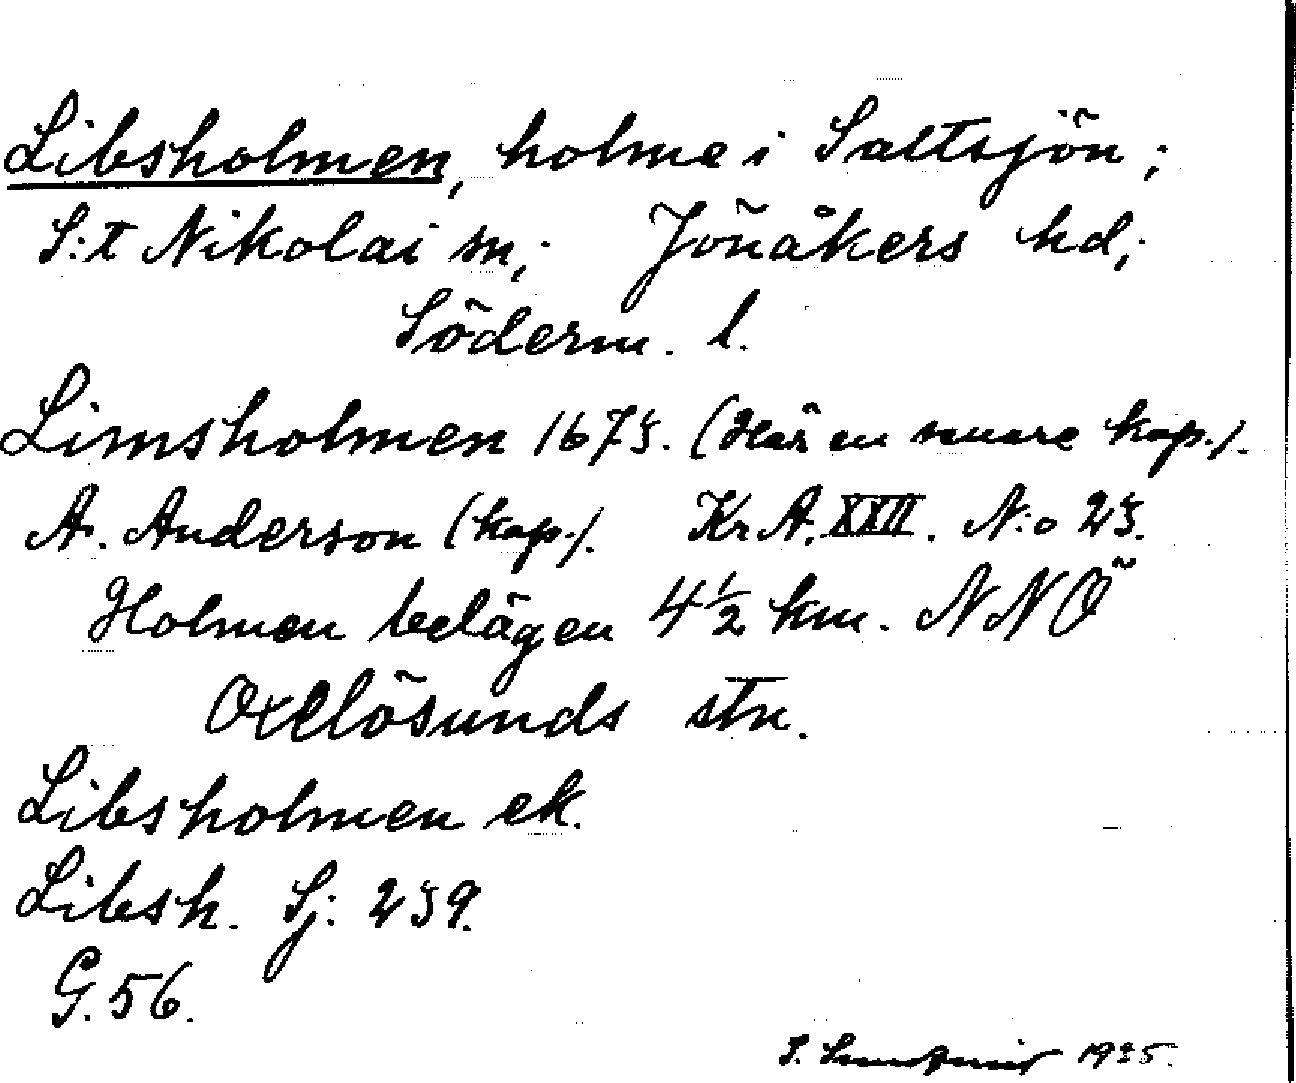 Libsholmen, holme i Saltsjön;
S:t Nikolai sn; Jönåkers hd;
Söderm. l.
Limsholmen 1675. (Här en senare kop.).
A. Anderson (kop.). Kr A. XXII. N:o 25.
Holmen belägen 4 1/2 km. NNÖ
Oxelösunds stn.
Libsholmen ek.
Libsh. Sj: 259.
G. 56.
S. 1935.